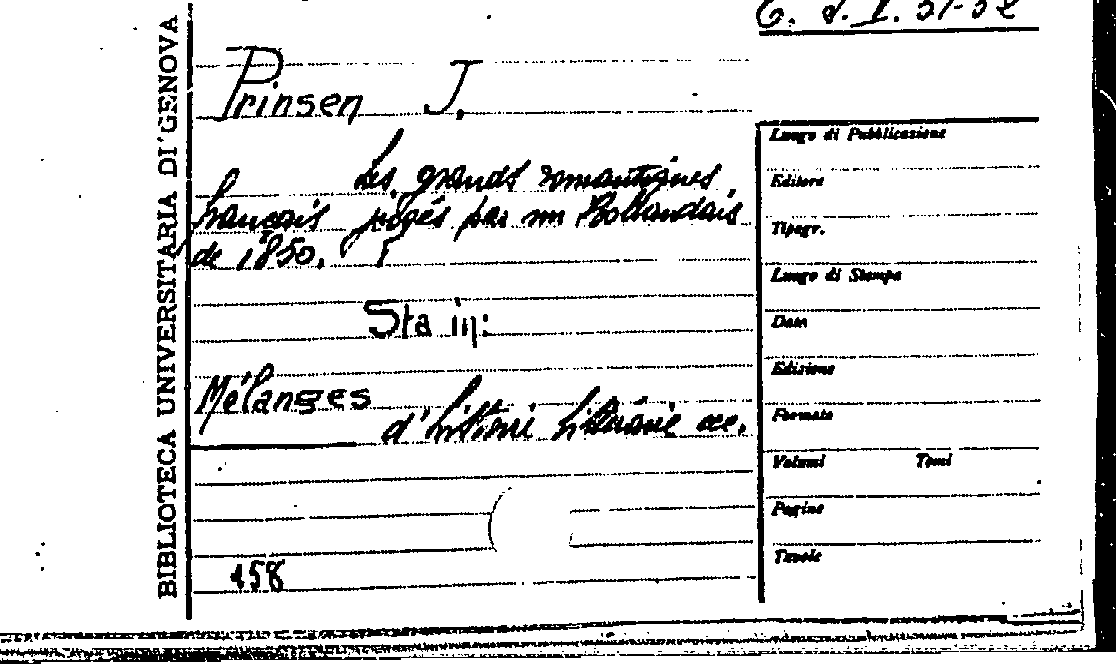 G. d. I. 51-52
BIBLIOTECA UNIVERSITARIA DI GENOVA
Prinsen J.
Les grands romantiques
français jugés par un Hollandais
de 1850.
Sta in:
Mélanges
d'histoire littéraire ecc.
158
Luogo di Pubblicazione
Editore
Tipogr.
Luogo di Stampa
Data
Edizione
Formato
Volumi Tomi
Pagine
Tavole